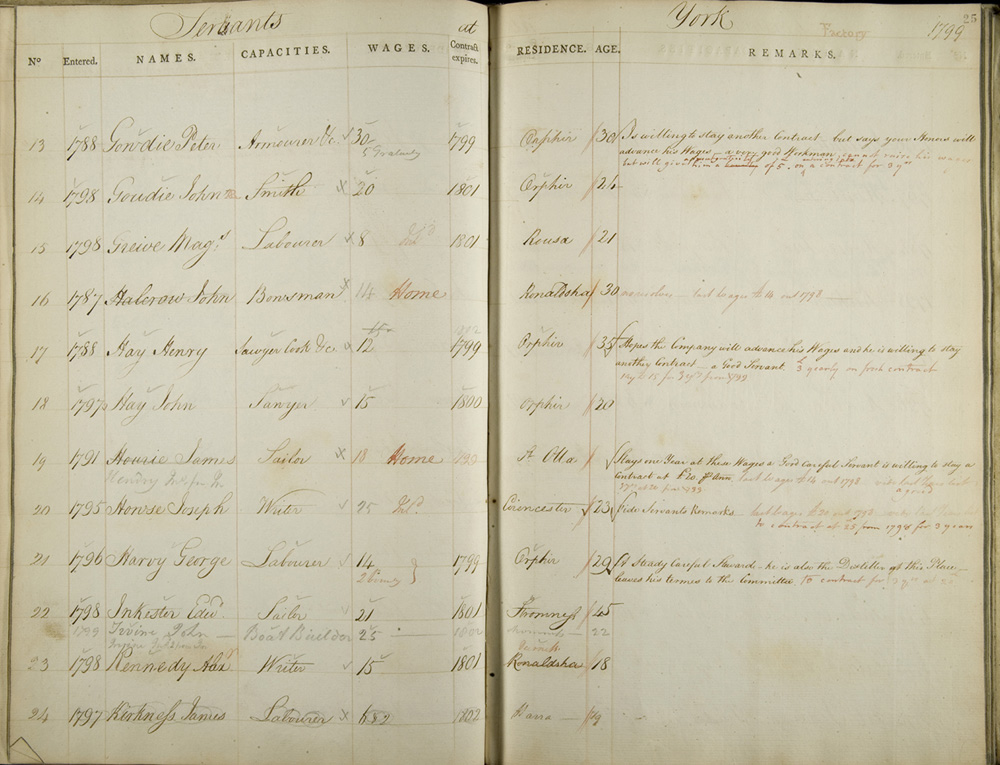 Servants at York Factory 1799
25
No Entered. NAMES. CAPACITIES. WAGES. Contract expires. RESIDENCE. AGE. REMARKS.
13 1788 Gowdie Peter Armourer &c 30 1799 Orphir 30 Is willing to stay another Contract but says your Honors will
5 Gratuity advance his Wages – a very good Workman, cannot raise his wages
but will give him a of 5 on a contract for 3 yrs
14 1798 Goudie John Smith 20 1801 Orphir 26
15 1798 Greive Mags Labourer 8 1801 Rousa 21
16 1787 Halcraw John Bowsman 14 Home Ronaldsha 30 last wages to 14 out 1798
17 1788 Hay Henry Sawyer Cook &c 12 1799 Orphir 35 Hopes the Company will advance his Wages and he is willing to stay
another Contract – a Good Servant 3 yearly on fresh contract
15 for 3 yrs from 1799
18 1797 Hay John Sawyer 15 1800 Orphir 20
19 1791 Hourie James Sailor 18 Home St Olla Stays one Year at these Wages a Good Careful Servant is willing to stay a
Contract at £20 pr Ann, last wages to 14 out 1798
20 1795 Howse Joseph Writer 25 Cirencester 23 Vide Servants Remarks last wages to 20 out 1798
to contract at 25 from 1798 for 3 years
21 1796 Harvy George Labourer 14 1799 Orphir 29 A Steady Careful Steward – he is also the Distiller at this Place –
2 Bounty leaves his termes to the Committee To contract for 3 yrs at 20
22 1798 Inkester Edwd Sailor 21 1801 Stromness 45
1799 Irvine John Boat Builder 25 1802 22
23 1798 Kennedy Alexr Writer 15 1801 Ronaldsha 18
24 1797 Kirkness James Labourer 1802 Harra 29